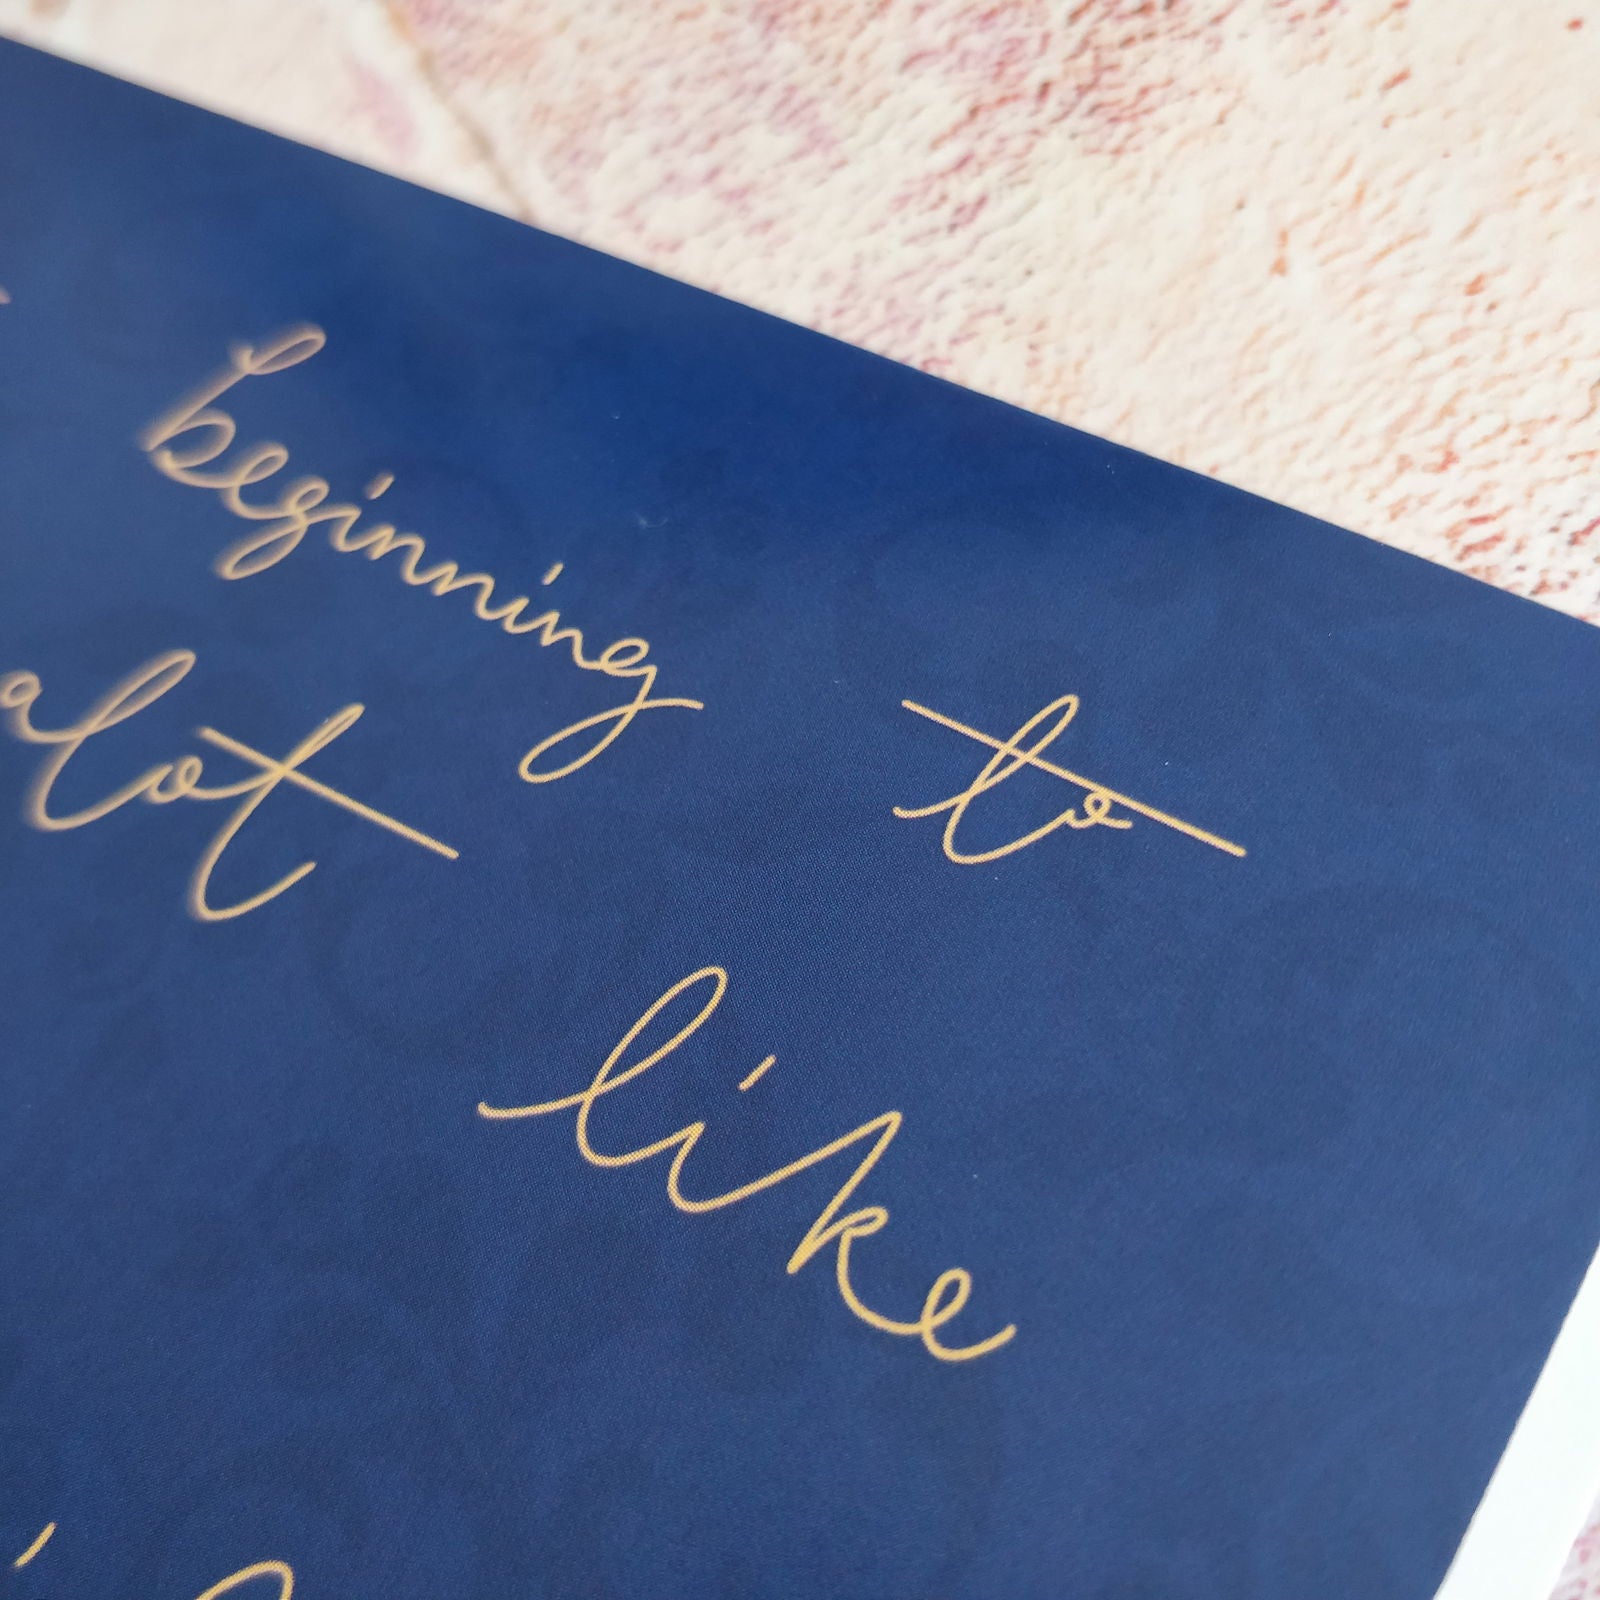 beginning to
alot like